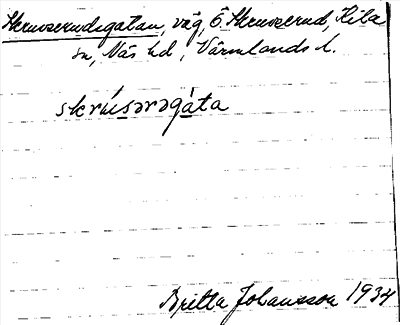 Skruvserudsgatan, väg, Ö. Skruvserud, Kila
sn, Näs hd, Värmlands l.
skrúsərəgàta
Britta Johansson 1934